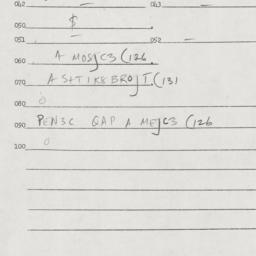 042 — 043 —
050 $
051 — 052 —
060 A MOSJC3 (126.
070 A S+TIK8BROJT.(131
080 0
090 PEN3C QAP A MEJC3 (126
100 0